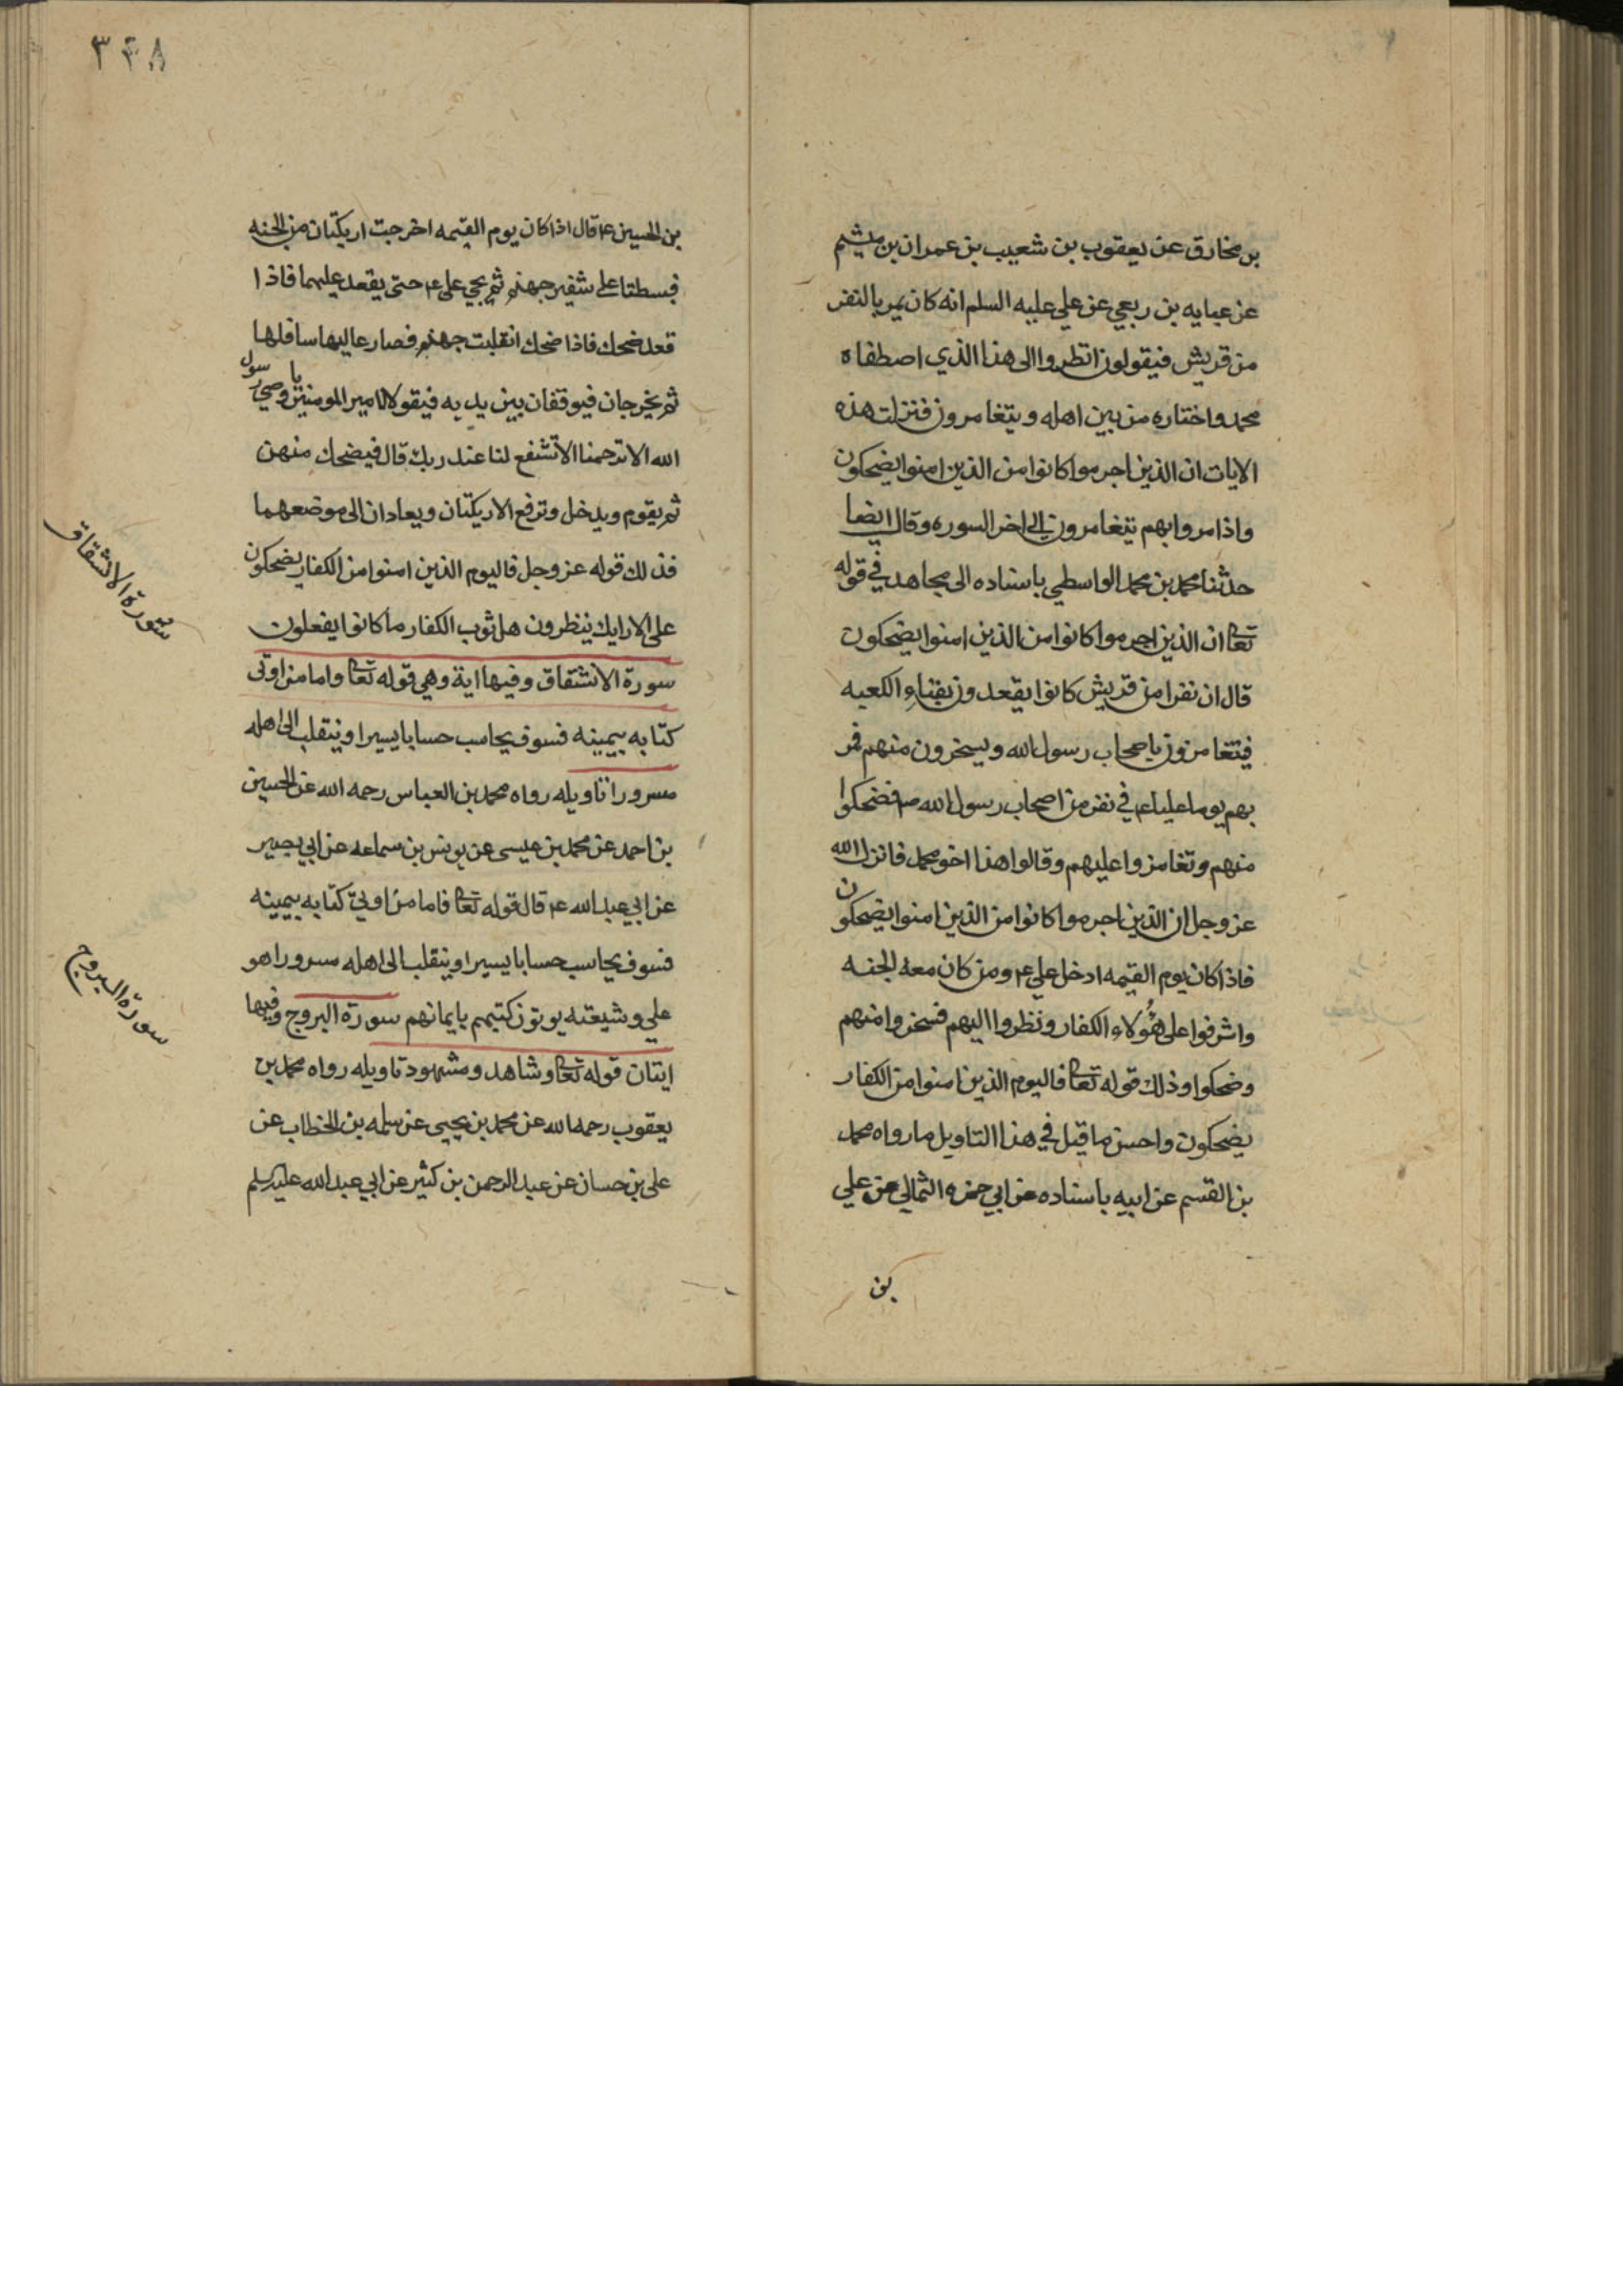 بن مخارق عن يعقوب بن شعيب بن عمران بن ميثم
عن عبايه بن ربعي عن علي عليه السلم انه كان يمر بالنفر
من قريش فيقولون انظروا الى هذا الذي اصطفاه
محمد واختاره من بين اهله ويتغامزون فنزلت هذه
الايات ان الذين اجرموا كانوا من الذين امنوا يضحكون
واذا مروا بهم يتغامزون الى اخر السوره وقال ايضا
حدثنا محمد بن محمد الواسطي باسناده الى مجاهد في قوله
تعا ان الذين اجرموا كانوا من الذين امنوا يضحكون
قال ان نفرا من قريش كانوا يقعدون بفناء الكعبه
فيتغامزون باصحاب رسول الله ويسخرون منهم فمر
بهم يوما عليا ع في نفر من اصحاب رسول الله ص فضحكوا
منهم وتغامزوا عليهم وقالوا هذا اخو محمد فانزل الله
عز وجل ان الذين اجرموا كانوا من الذين امنوا يضحكون
فاذا كان يوم القيمه ادخل علي ع ومن كان معه الجنه
واشرفوا على هؤلاء الكفار ونظروا اليهم فسخروا منهم
وضحكوا وذلك قوله تعا فاليوم الذين امنوا من الكفار
يضحكون واحسن ما قيل في هذا التاويل ما رواه محمد
بن القسم عن ابيه باسناده عن ابي حمزه الثمالي عن علي
بن
٣٤٨
بن الحسين ع قال اذا كان يوم القيمه اخرجت اريكتان من الجنه
فبسطتا على شفير جهنم ثم يجي علي ع حتى يقعد عليهما فاذا
قعد ضحك فاذا ضحك انقلبت جهنم فصار عاليها سافلها
ثم يخرجان فيوقفان بين يديه فيقولا يا امير المومنين يا وصي رسول
الله الا ترحمنا الا تشفع لنا عند ربك قال فيضحك منهن
ثم يقوم ويدخل وترفع الاريكتان ويعادان الى موضعهما
فذلك قوله عز وجل فاليوم الذين امنوا من الكفار يضحكون
على الارايك ينظرون هل ثوب الكفار ما كانوا يفعلون
سورة الانشقاق وفيها اية وهي قوله تعا واما من اوتى
كتابه بيمينه فسوف يحاسب حسابا يسيرا وينقلب الى اهله
مسرورا تاويله رواه محمد بن العباس رحمه الله عن الحسين
بن احمد عن محمد بن عيسى عن يونس بن سماعه عن ابي بصير
عن ابي عبد الله ع قال قوله تعا فاما من اوتي كتابه بيمينه
فسوف يحاسب حسابا يسيرا وينقلب الى اهله مسرورا هو
علي وشيعته يوتون كتبهم بايمانهم سورة البروج وفيها
ايتان قوله تعا وشاهد ومشهود تاويله رواه محمد بن
يعقوب رحمه الله عن محمد بن يحيى عن سلمه بن الخطاب عن
علي بن حسان عن عبد الرحمن بن كثير عن ابي عبد الله عليه السلم
سورة الانشقاق
سورة البروج